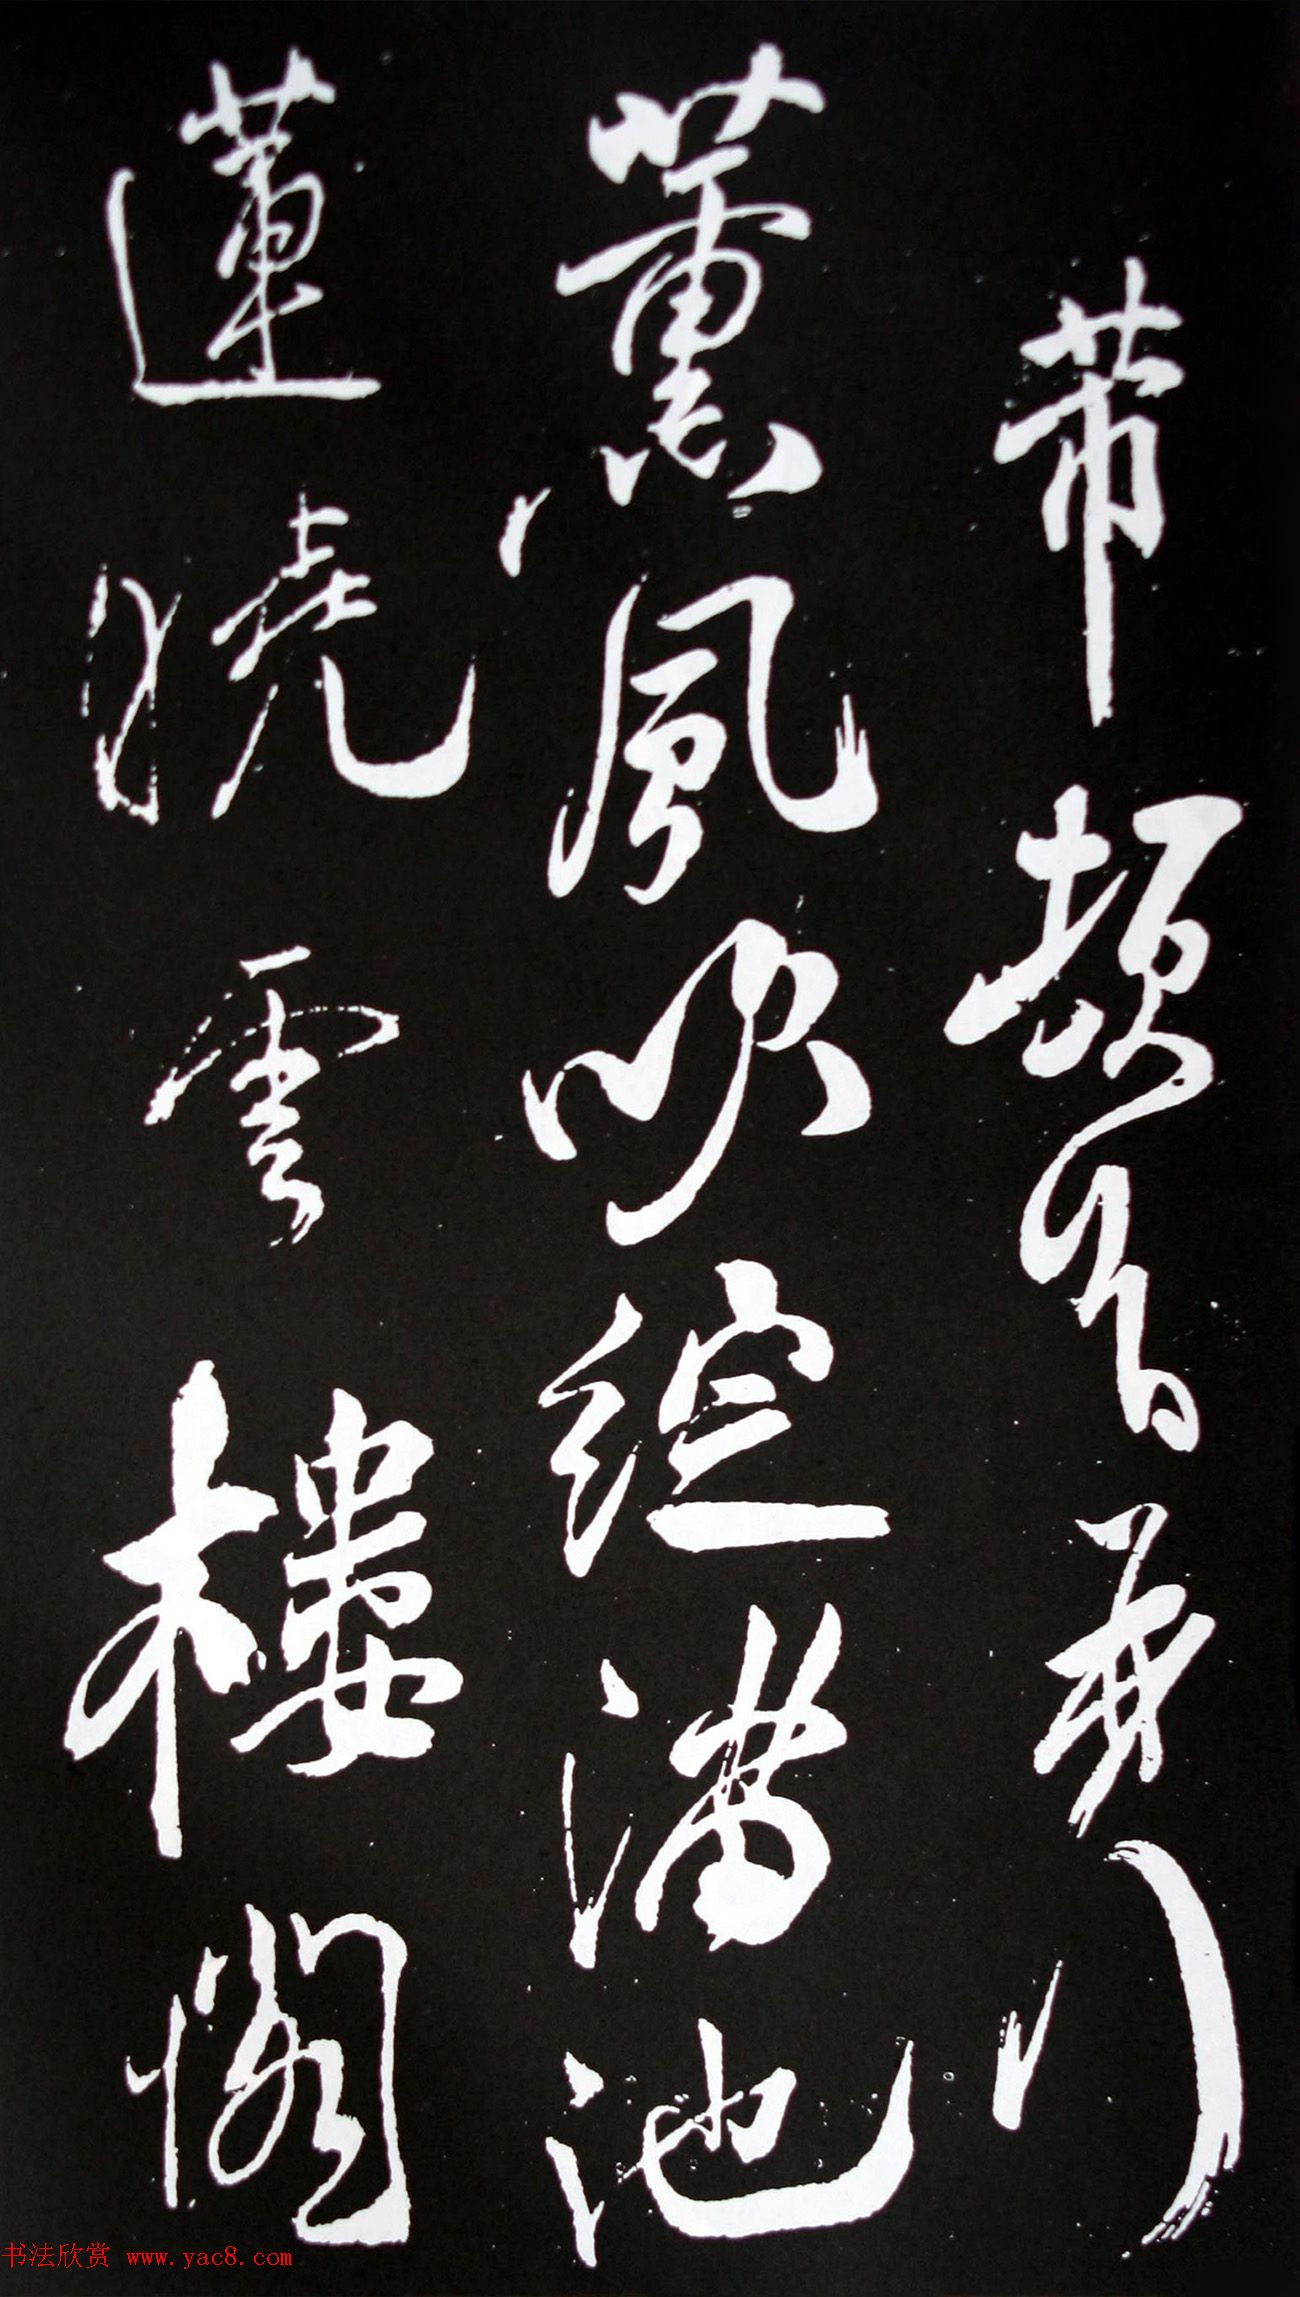 芾頓首
薰風吹綻滿池
蓮曉雲樓閣
书法欣赏 www.yac8.com